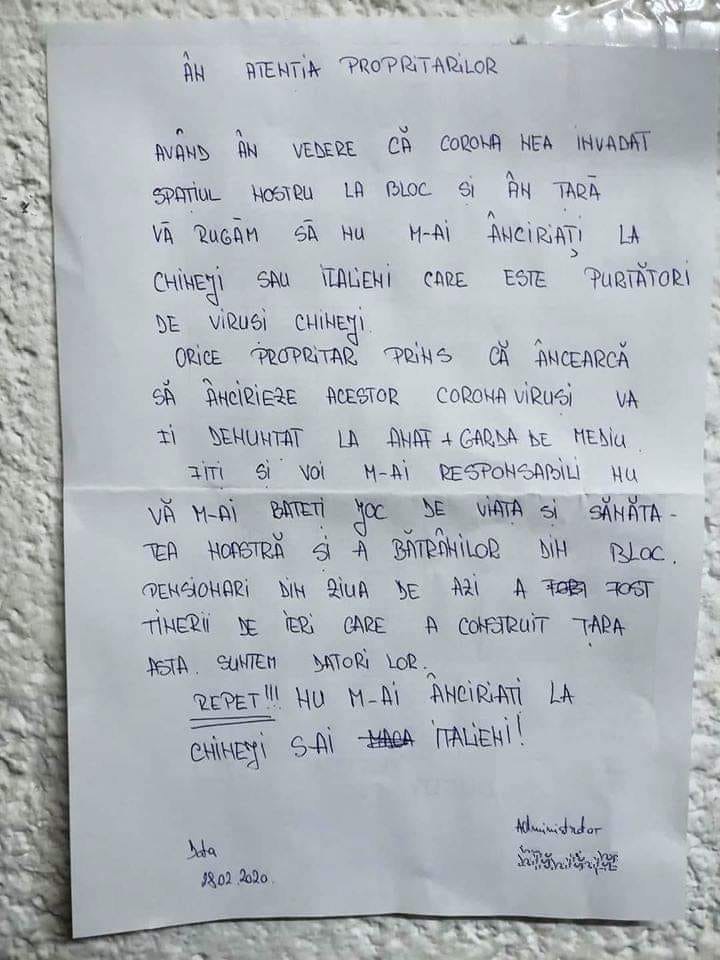 ÂN ATENTIA PROPRITARILOR
AVÂND ÂN VEDERE CĂ CORONA NEA INVADAT
SPATIUL NOSTRU LA BLOC SI ÂN ȚARĂ
VĂ RUGĂM SĂ NU M-AI ÂNCIRIAȚI LA
CHINEJI SAU ITALIENI CARE ESTE PURTĂTORI
DE VIRUSI CHINEJI.
ORICE PROPRITAR PRINS CĂ ÂNCEARCĂ
SĂ ÂNCIRIEZE ACESTOR CORONA VIRUSI VA
II DENUNTAT LA ANAF + GARDA DE MEDIU.
FITI SI VOI M-AI RESPONSABILI NU
VĂ M-AI BATETI JOC DE VIAȚA SI SĂNĂTA-
TEA NOASTRĂ SI A BĂTRÂNILOR DIN BLOC.
PENSIONARI DIN ZIUA DE AZI A FOST
TINERII DE IERI CARE A CONSTRUIT ȚARA
ASTA. SUNTEM DATORI LOR.
REPET!!! NU M-AI ÂNCIRIATI LA
CHINEJI S-AI ITALIENI!
Administrator
Data
28.02.2020.